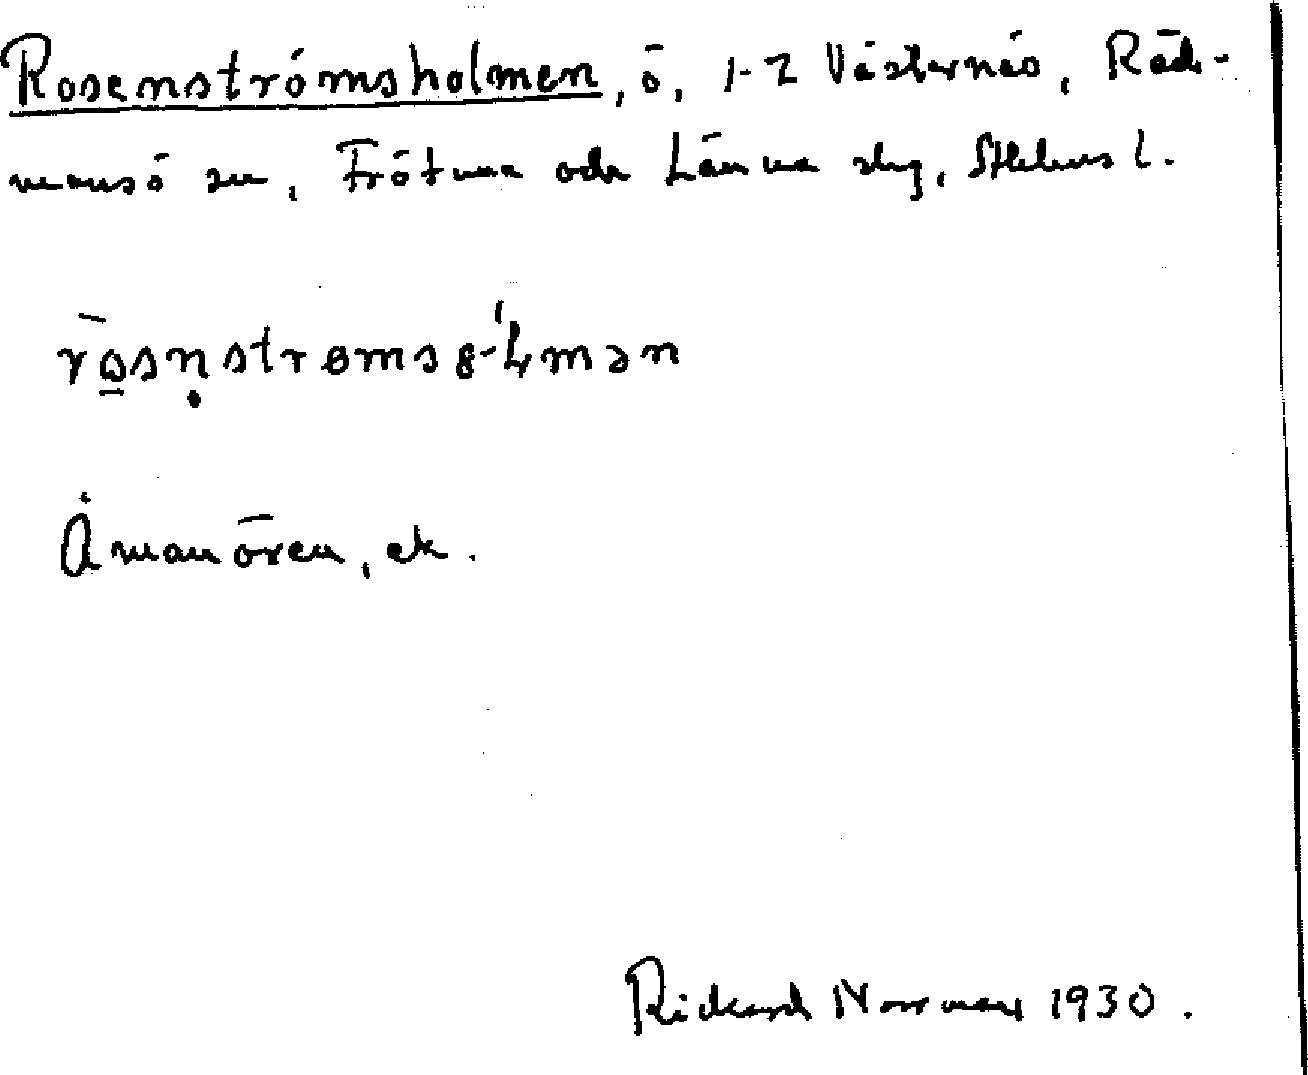 Rosenströmsholmen, ö, 1-2 Västernäs, Råd-
mansö sn, Frötuna och Länna skg, Sthlms l.
rosn̥strømsɷ-lmən
Åmanören, ek.
Rickard Norrman 1930.